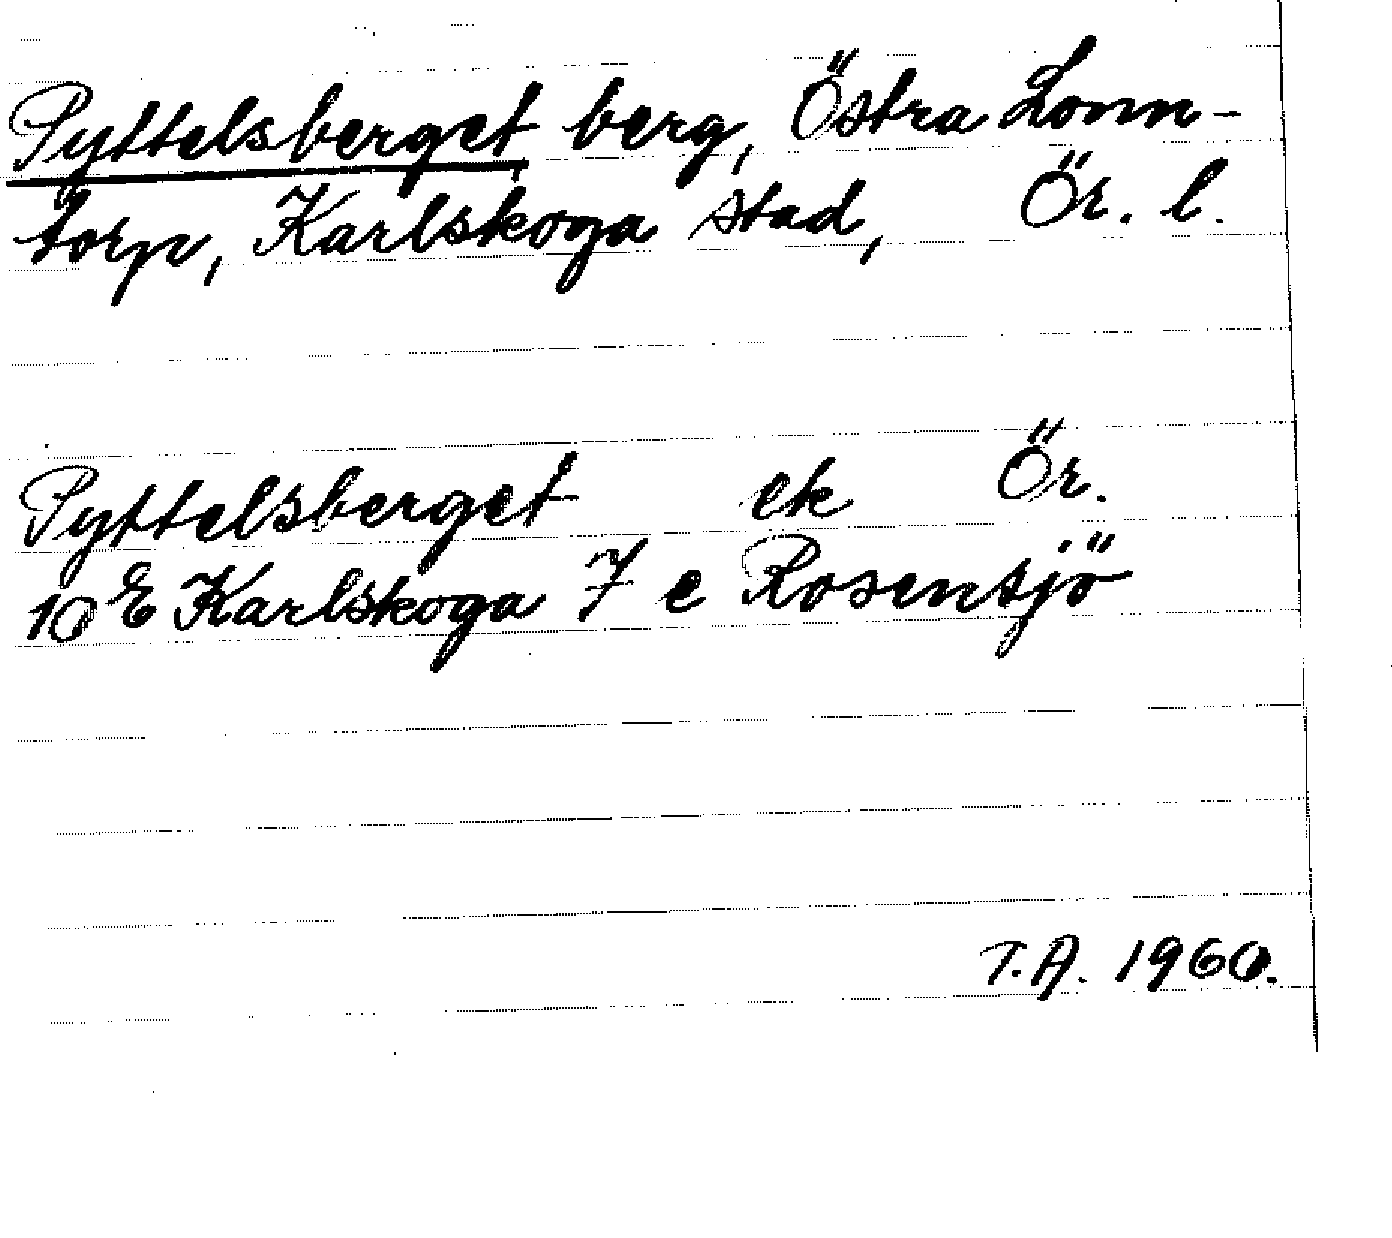 Pyttelsberget berg, Östra Lonn-
torp, Karlskoga stad, Ör. l.
Pyttelsberget ek Ör.
10 E Karlskoga 7 e Rosensjö
T.A. 1960.